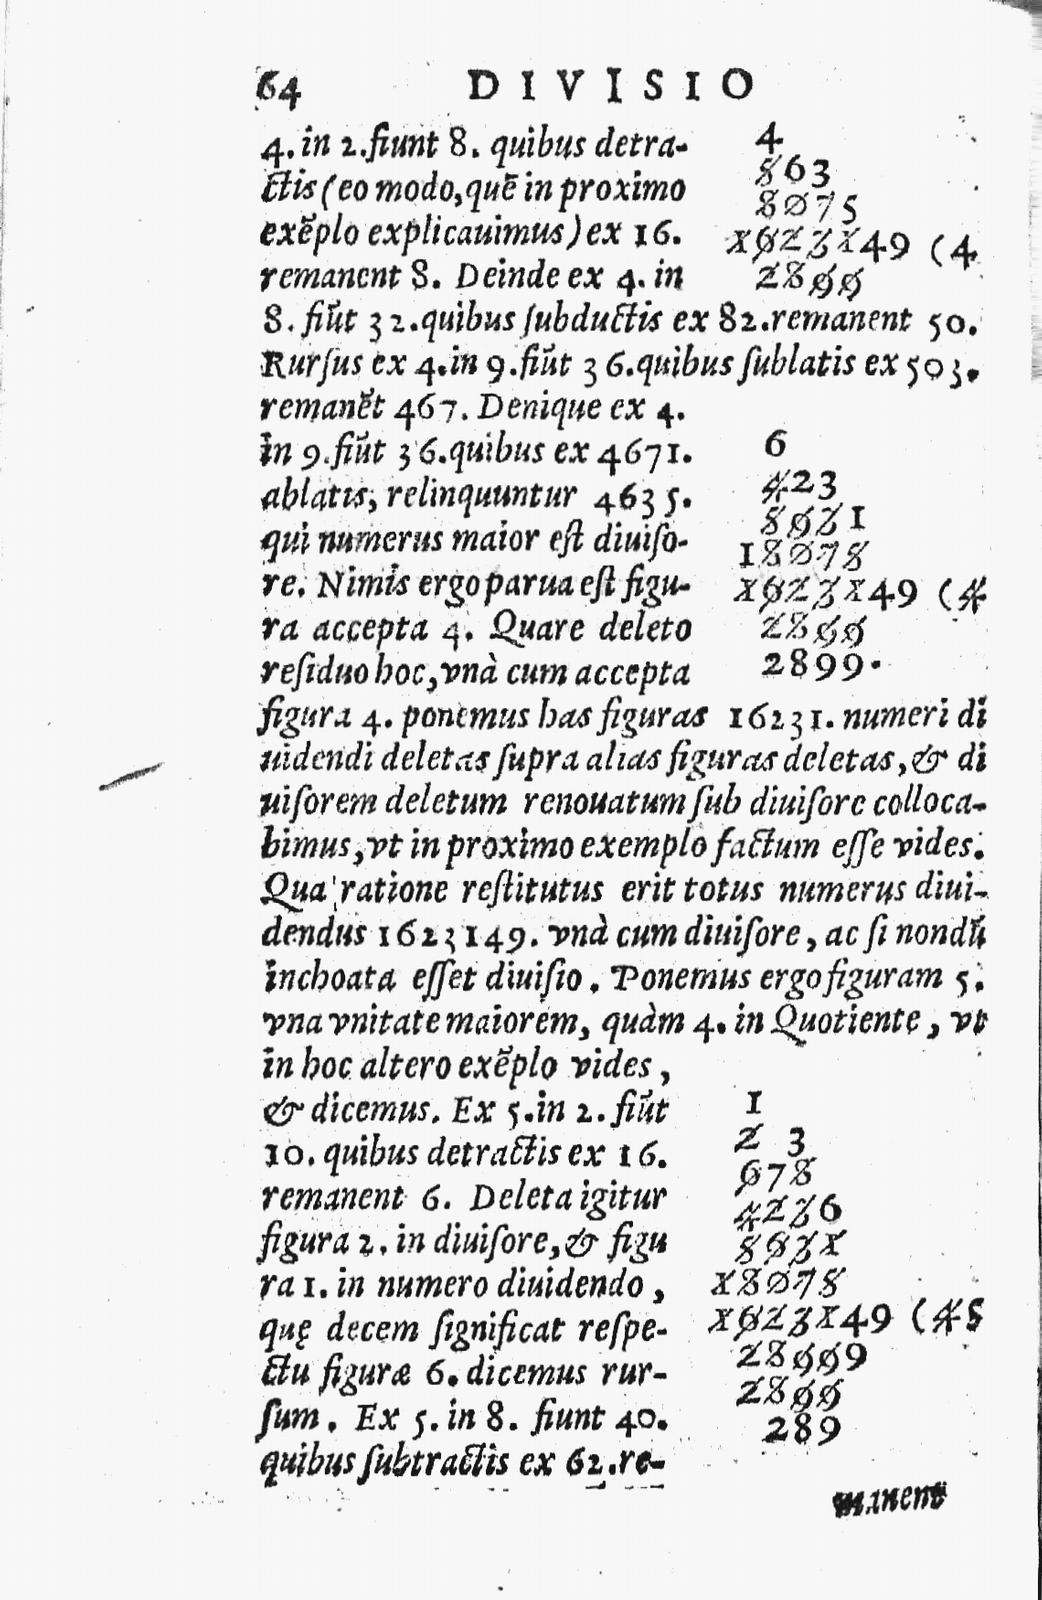 64 DIVISIO
4. in 2.fiunt 8. quibus detra-
ctis (eo modo,quẽ in proximo
exẽplo explicauimus) ex 16.
remanent 8. Deinde ex 4. in
8. fiũt 32.quibus subductis ex 82.remanent 50.
Rursus ex 4.in 9.fiũt 36.quibus sublatis ex 503.
remanẽt 467. Denique ex 4.
in 9.fiũt 36.quibus ex 4671.
ablatis, relinquuntur 4635.
qui numerus maior est diuiso-
re. Nimis ergo parua est figu-
ra accepta 4. Quare deleto
residuo hoc, vnà cum accepta
4
863
8075
1623149 (4
2899
6
423
8031
18078
1623149 (4
2899
2899.
figura 4. ponemus has figuras 16231. numeri di
uidendi deletas supra alias figuras deletas, & di
uisorem deletum renouatum sub diuisore colloca-
bimus, vt in proximo exemplo factum esse vides.
Qua ratione restitutus erit totus numerus diui-
dendus 1623149. vnà cum diuisore, ac si nondũ
inchoata esset diuisio. Ponemus ergo figuram 5.
vna vnitate maiorem, quàm 4. in Quotiente, vt
in hoc altero exẽplo vides,
& dicemus. Ex 5.in 2. fiũt
10. quibus detractis ex 16.
remanent 6. Deleta igitur
figura 2. in diuisore, & figu
ra 1. in numero diuidendo,
quę decem significat respe-
ctu figuræ 6. dicemus rur-
sum. Ex 5. in 8. fiunt 40.
quibus subtractis ex 62.re-
1
2 3
678
4236
8031
18078
1623149 (45
28999
2899
289
manent